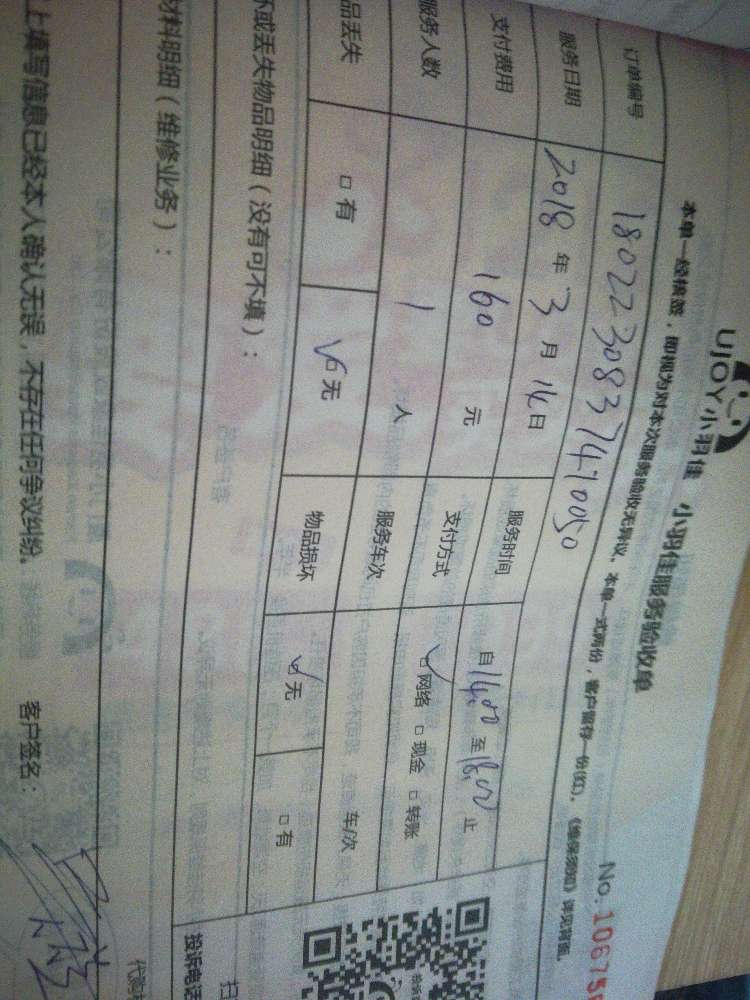 UJOY小羽佳 小羽佳服务验收单
No.10675
本单一经核签，即视为对本次服务验收无异议。本单一式两份，客户留存一份(红)。《维保须知》详见背面。
订单编号 180223083747
服务日期 2018 年 3 月 14 日 服务时间 自 14:00 至 18:00 止
支付费用 160 元 支付方式 网络 □ 现金 □ 转账
服务人数 1 人 服务车次 车/次
品丢失 □ 有 □ 无 物品损坏 □ 无 □ 有
坏或丢失物品明细（没有可不填）：
材料明细（维修业务）：
投诉电话
上填写信息已经本人确认无误，不存在任何争议纠纷。 客户签名：